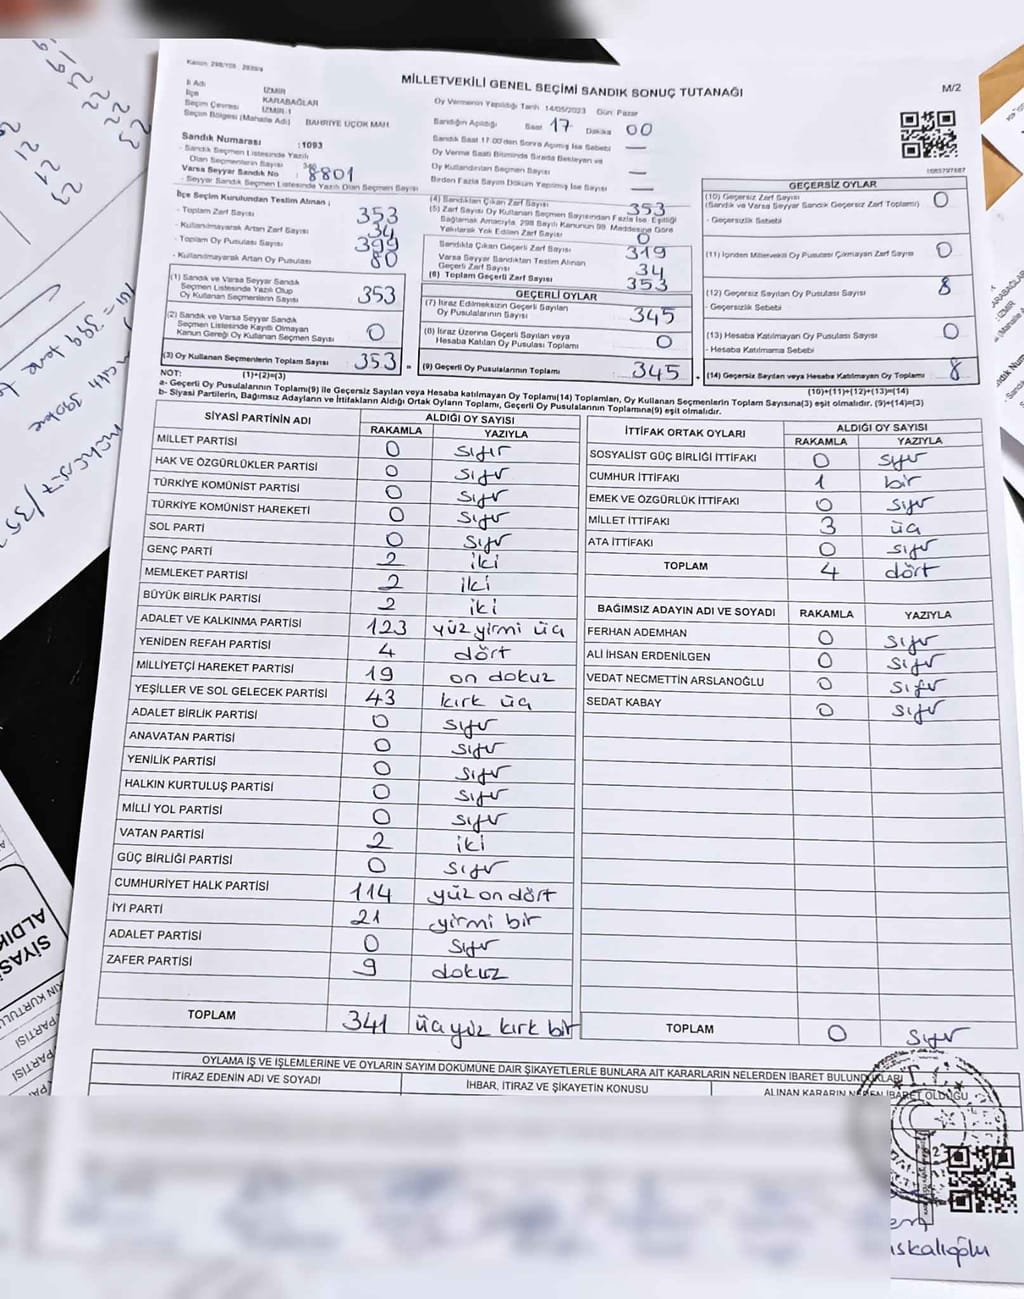 MİLLETVEKİLİ GENEL SEÇİMİ SANDIK SONUÇ TUTANAĞI
M/2
İl Adı İZMİR
İlçe KARABAĞLAR
Seçim Çevresi İZMİR-1
Seçim Bölgesi (Mahalle Adı) BAHRİYE ÜÇOK MAH.
Oy Vermenin Yapıldığı Tarih 14/05/2023 Gün: Pazar
Sandığın Açıldığı Saat 17 Dakika 00
Sandık Saat 17:00'den Sonra Açılmış İse Sebebi —
Oy Verme Saati Bitiminde Sırada Bekleyen ve
Oy Kullandırılan Seçmen Sayısı —
Birden Fazla Sayım Döküm Yapılmış İse Sayısı —
Sandık Numarası : 1093
- Sandık Seçmen Listesinde Yazılı
Olan Seçmenlerin Sayısı
Varsa Seyyar Sandık No : 8801
- Seyyar Sandık Seçmen Listesinde Yazılı Olan Seçmen Sayısı
İlçe Seçim Kurulundan Teslim Alınan ;
- Toplam Zarf Sayısı 353
- Kullanılmayarak Artan Zarf Sayısı 34
- Toplam Oy Pusulası Sayısı 399
- Kullanılmayarak Artan Oy Pusulası 80
(1) Sandık ve Varsa Seyyar Sandık
Seçmen Listesinde Yazılı Olup
Oy Kullanan Seçmenlerin Sayısı 353
(2) Sandık ve Varsa Seyyar Sandık
Seçmen Listesinde Kayıtlı Olmayan
Kanun Gereği Oy Kullanan Seçmen Sayısı 0
(3) Oy Kullanan Seçmenlerin Toplam Sayısı 353
(4) Sandıktan Çıkan Zarf Sayısı 353
(5) Zarf Sayısı Oy Kullanan Seçmen Sayısından Fazla İse, Eşitliği
Sağlamak Amacıyla, 298 Sayılı Kanunun 98. Maddesine Göre
Yakılarak Yok Edilen Zarf Sayısı 0
Sandıkta Çıkan Geçerli Zarf Sayısı 319
Varsa Seyyar Sandıktan Teslim Alınan
Geçerli Zarf Sayısı 34
(6) Toplam Geçerli Zarf Sayısı 353
GEÇERLİ OYLAR
(7) İtiraz Edilmeksizin Geçerli Sayılan
Oy Pusulalarının Sayısı 345
(8) İtiraz Üzerine Geçerli Sayılan veya
Hesaba Katılan Oy Pusulası Toplamı 0
(9) Geçerli Oy Pusulalarının Toplamı 345
GEÇERSİZ OYLAR
(10) Geçersiz Zarf Sayısı
(Sandık ve Varsa Seyyar Sandık Geçersiz Zarf Toplamı) 0
- Geçersizlik Sebebi
(11) İçinden Milletvekili Oy Pusulası Çıkmayan Zarf Sayısı 0
(12) Geçersiz Sayılan Oy Pusulası Sayısı 8
- Geçersizlik Sebebi
(13) Hesaba Katılmayan Oy Pusulası Sayısı 0
- Hesaba Katılmama Sebebi
(14) Geçersiz Sayılan veya Hesaba Katılmayan Oy Toplamı 8
NOT: (1)+(2)=(3) (10)+(11)+(12)+(13)=(14)
a- Geçerli Oy Pusulalarının Toplamı(9) ile Geçersiz Sayılan veya Hesaba katılmayan Oy Toplamı(14) Toplamları, Oy Kullanan Seçmenlerin Toplam Sayısına(3) eşit olmalıdır. (9)+(14)=(3)
b- Siyasi Partilerin, Bağımsız Adayların ve İttifakların Aldığı Ortak Oyların Toplamı, Geçerli Oy Pusulalarının Toplamına(9) eşit olmalıdır.
SİYASİ PARTİNİN ADI ALDIĞI OY SAYISI
RAKAMLA YAZIYLA
MİLLET PARTİSİ 0 sıfır
HAK VE ÖZGÜRLÜKLER PARTİSİ 0 sıfır
TÜRKİYE KOMÜNİST PARTİSİ 0 sıfır
TÜRKİYE KOMÜNİST HAREKETİ 0 sıfır
SOL PARTİ 0 sıfır
GENÇ PARTİ 2 iki
MEMLEKET PARTİSİ 2 iki
BÜYÜK BİRLİK PARTİSİ 2 iki
ADALET VE KALKINMA PARTİSİ 123 yüz yirmi üç
YENİDEN REFAH PARTİSİ 4 dört
MİLLİYETÇİ HAREKET PARTİSİ 19 on dokuz
YEŞİLLER VE SOL GELECEK PARTİSİ 43 kırk üç
ADALET BİRLİK PARTİSİ 0 sıfır
ANAVATAN PARTİSİ 0 sıfır
YENİLİK PARTİSİ 0 sıfır
HALKIN KURTULUŞ PARTİSİ 0 sıfır
MİLLİ YOL PARTİSİ 0 sıfır
VATAN PARTİSİ 2 iki
GÜÇ BİRLİĞİ PARTİSİ 0 sıfır
CUMHURİYET HALK PARTİSİ 114 yüz on dört
İYİ PARTİ 21 yirmi bir
ADALET PARTİSİ 0 sıfır
ZAFER PARTİSİ 9 dokuz
TOPLAM 341 üçyüz kırk bir
İTTİFAK ORTAK OYLARI ALDIĞI OY SAYISI
RAKAMLA YAZIYLA
SOSYALİST GÜÇ BİRLİĞİ İTTİFAKI 0 sıfır
CUMHUR İTTİFAKI 1 bir
EMEK VE ÖZGÜRLÜK İTTİFAKI 0 sıfır
MİLLET İTTİFAKI 3 üç
ATA İTTİFAKI 0 sıfır
TOPLAM 4 dört
BAĞIMSIZ ADAYIN ADI VE SOYADI RAKAMLA YAZIYLA
FERHAN ADEMHAN 0 sıfır
ALİ İHSAN ERDENİLGEN 0 sıfır
VEDAT NECMETTİN ARSLANOĞLU 0 sıfır
SEDAT KABAY 0 sıfır
TOPLAM 0 sıfır
OYLAMA İŞ VE İŞLEMLERİNE VE OYLARIN SAYIM DÖKÜMÜNE DAİR ŞİKAYETLERLE BUNLARA AİT KARARLARIN NELERDEN İBARET BULUNDUKLARI
İTİRAZ EDENİN ADI VE SOYADI İHBAR, İTİRAZ VE ŞİKAYETİN KONUSU ALINAN KARARIN NEDEN İBARET OLDUĞU
T.C.
SİYASİ
ALDIK
PARTİSİ